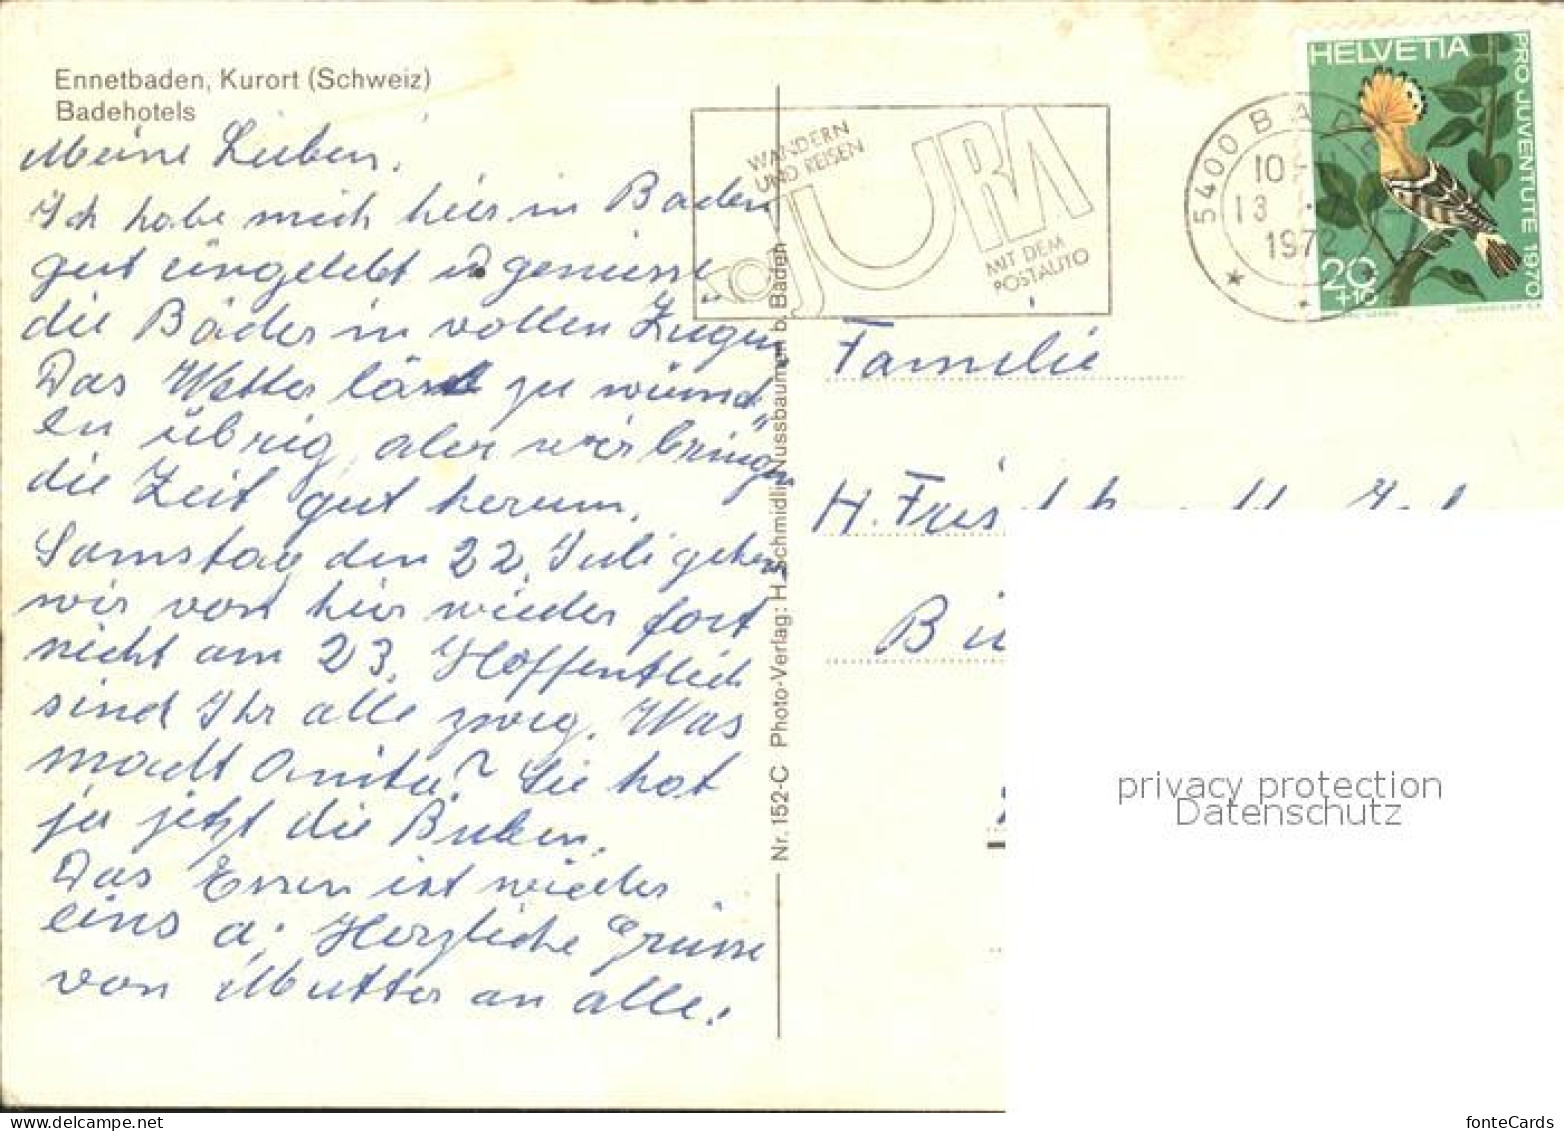 Ennetbaden, Kurort (Schweiz)
Badehotels
Meine Lieben,
Ich habe mich hier in Baden
gut eingelebt u geniesse
die Bäder in vollen Zügen
Das Wetter lässt zu wünsch
en übrig aber wir bringen
die Zeit gut herum.
Samstag den 22. Juli gehen
wir von hier wieder fort
nicht am 23. Hoffentlich
sind Ihr alle zweg. Was
macht Anita? Sie hat
ja jetzt die Buben.
Das Essen ist wieder
eins a. Herzliche Grüsse
von Mutter an alle.
Nr. 152-C Photo-Verlag: H. Schmidli, Nussbaumen b. Baden
WANDERN
UND REISEN
JURA
MIT DEM
POSTAUTO
5400 BADEN
10
13
1972
HELVETIA
PRO JUVENTUTE 1970
20
+10
Familie
H.
privacy protection
Datenschutz
fonteCards